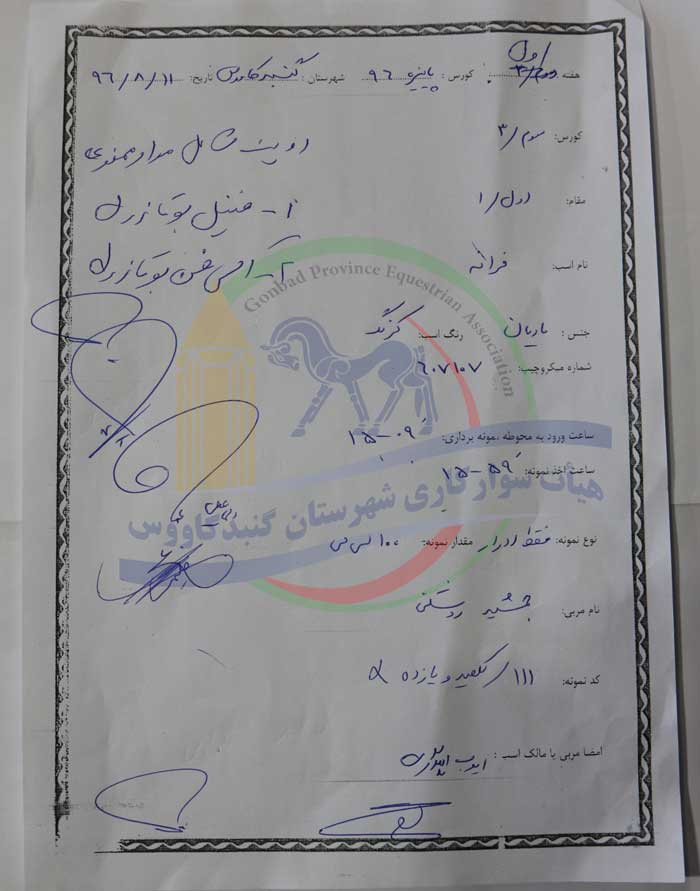 هفته اول کورس: پاییزه ۹۶ شهرستان: گنبدکاووس تاریخ: ۹۶/۸/۱۱
کورس: سوم/۳
مقام: اول/۱
نام اسب: فرانه
جنس: مادیان رنگ اسب: کرند
شماره میکروچیپ: ۶۰۷۱۰۷
ساعت ورود به محوطه نمونه برداری: ۱۵-۰۹
ساعت اخذ نمونه: ۱۵-۵۹
نوع نمونه: فقط ادرار مقدار نمونه: ۱۰۰ سی سی
نام مربی: جمشید
کد نمونه: ۱۱۱/یکصد و یازده
امضا مربی یا مالک اسب: ایوب
ادرار شامل مواد ممنوعه
۱- فنیل بوتازون
۲- اکسی فن بوتازون
Gonbad Province Equestrian Association
هیأت سوارکاری شهرستان گنبدکاووس